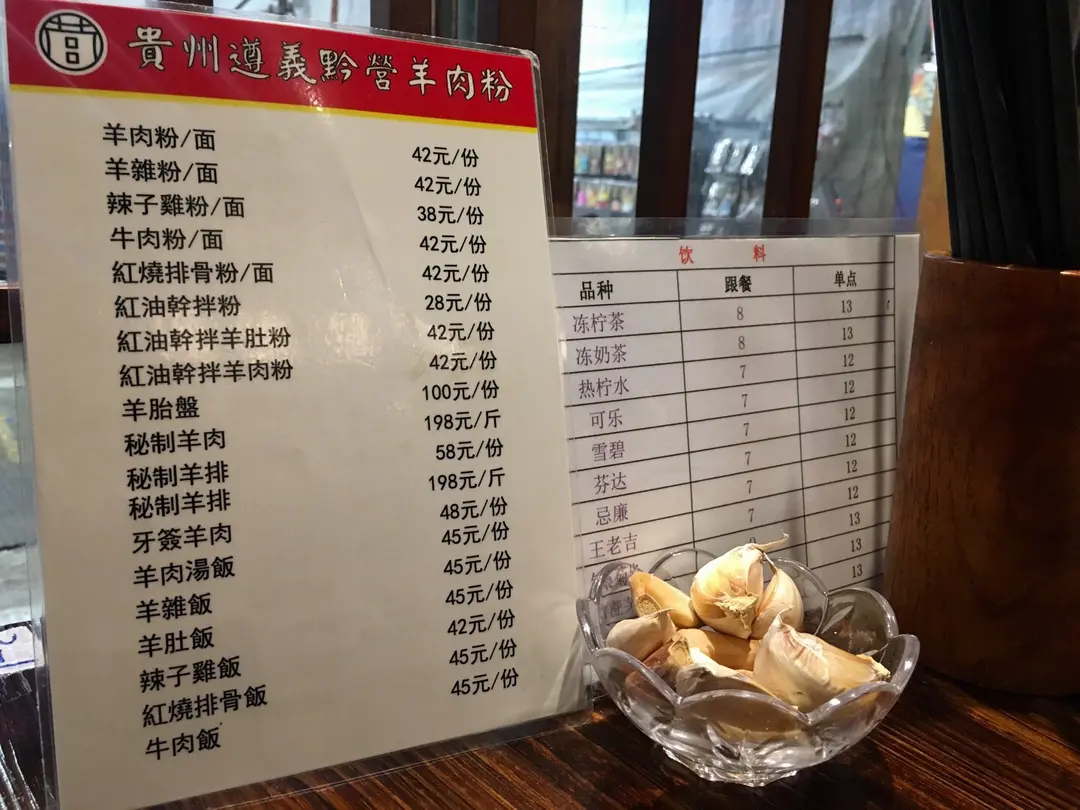 貴州遵義黔營羊肉粉
羊肉粉/面 42元/份
羊雜粉/面 42元/份
辣子雞粉/面 38元/份
牛肉粉/面 42元/份
紅燒排骨粉/面 42元/份
紅油幹拌粉 28元/份
紅油幹拌羊肚粉 42元/份
紅油幹拌羊肉粉 42元/份
羊胎盤 100元/份
秘制羊肉 198元/斤
秘制羊排 58元/份
秘制羊排 198元/斤
牙簽羊肉 48元/份
羊肉湯飯 45元/份
羊雜飯 45元/份
羊肚飯 45元/份
辣子雞飯 42元/份
紅燒排骨飯 45元/份
牛肉飯 45元/份
饮料
品种 跟餐 单点
冻柠茶 8 13
冻奶茶 8 13
热柠水 7 12
可乐 7 12
雪碧 7 12
芬达 7 12
忌廉 7 12
王老吉 7 12
13
13
13